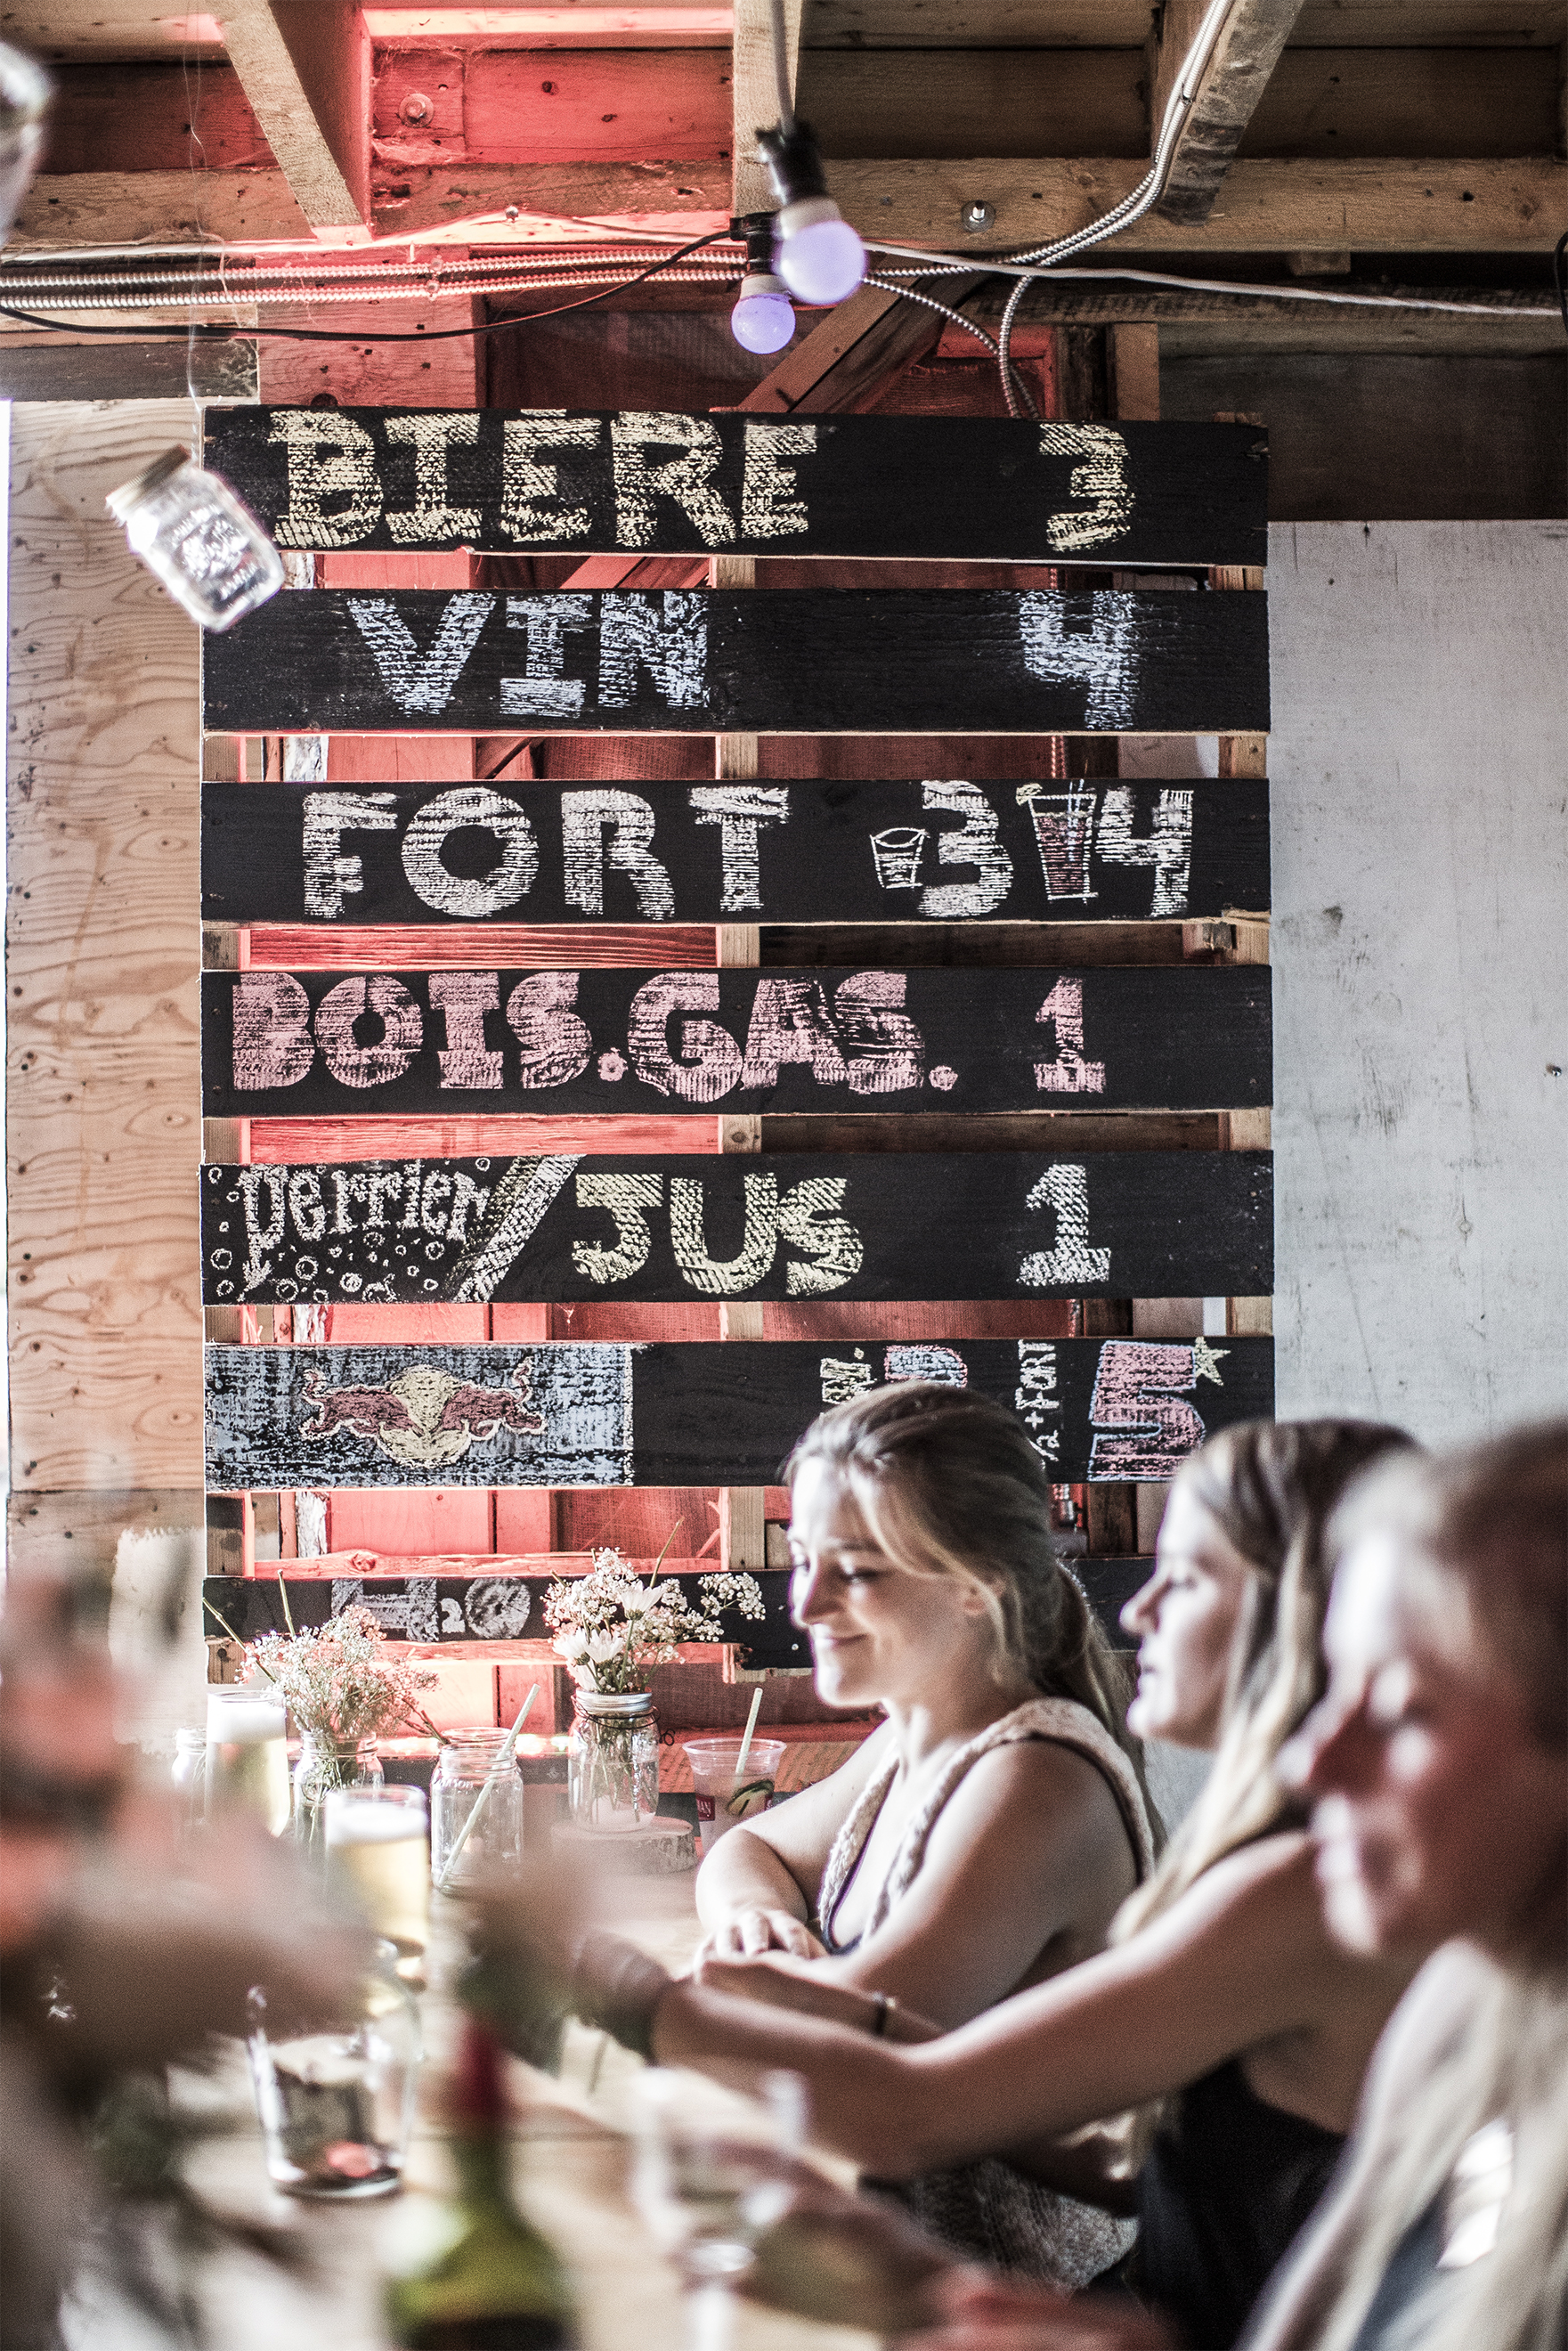 BIÈRE 3
VIN 4
FORT 3 4
BOIS.GAS. 1
perrier/JUS 1
1/2+FORT 5
H2O